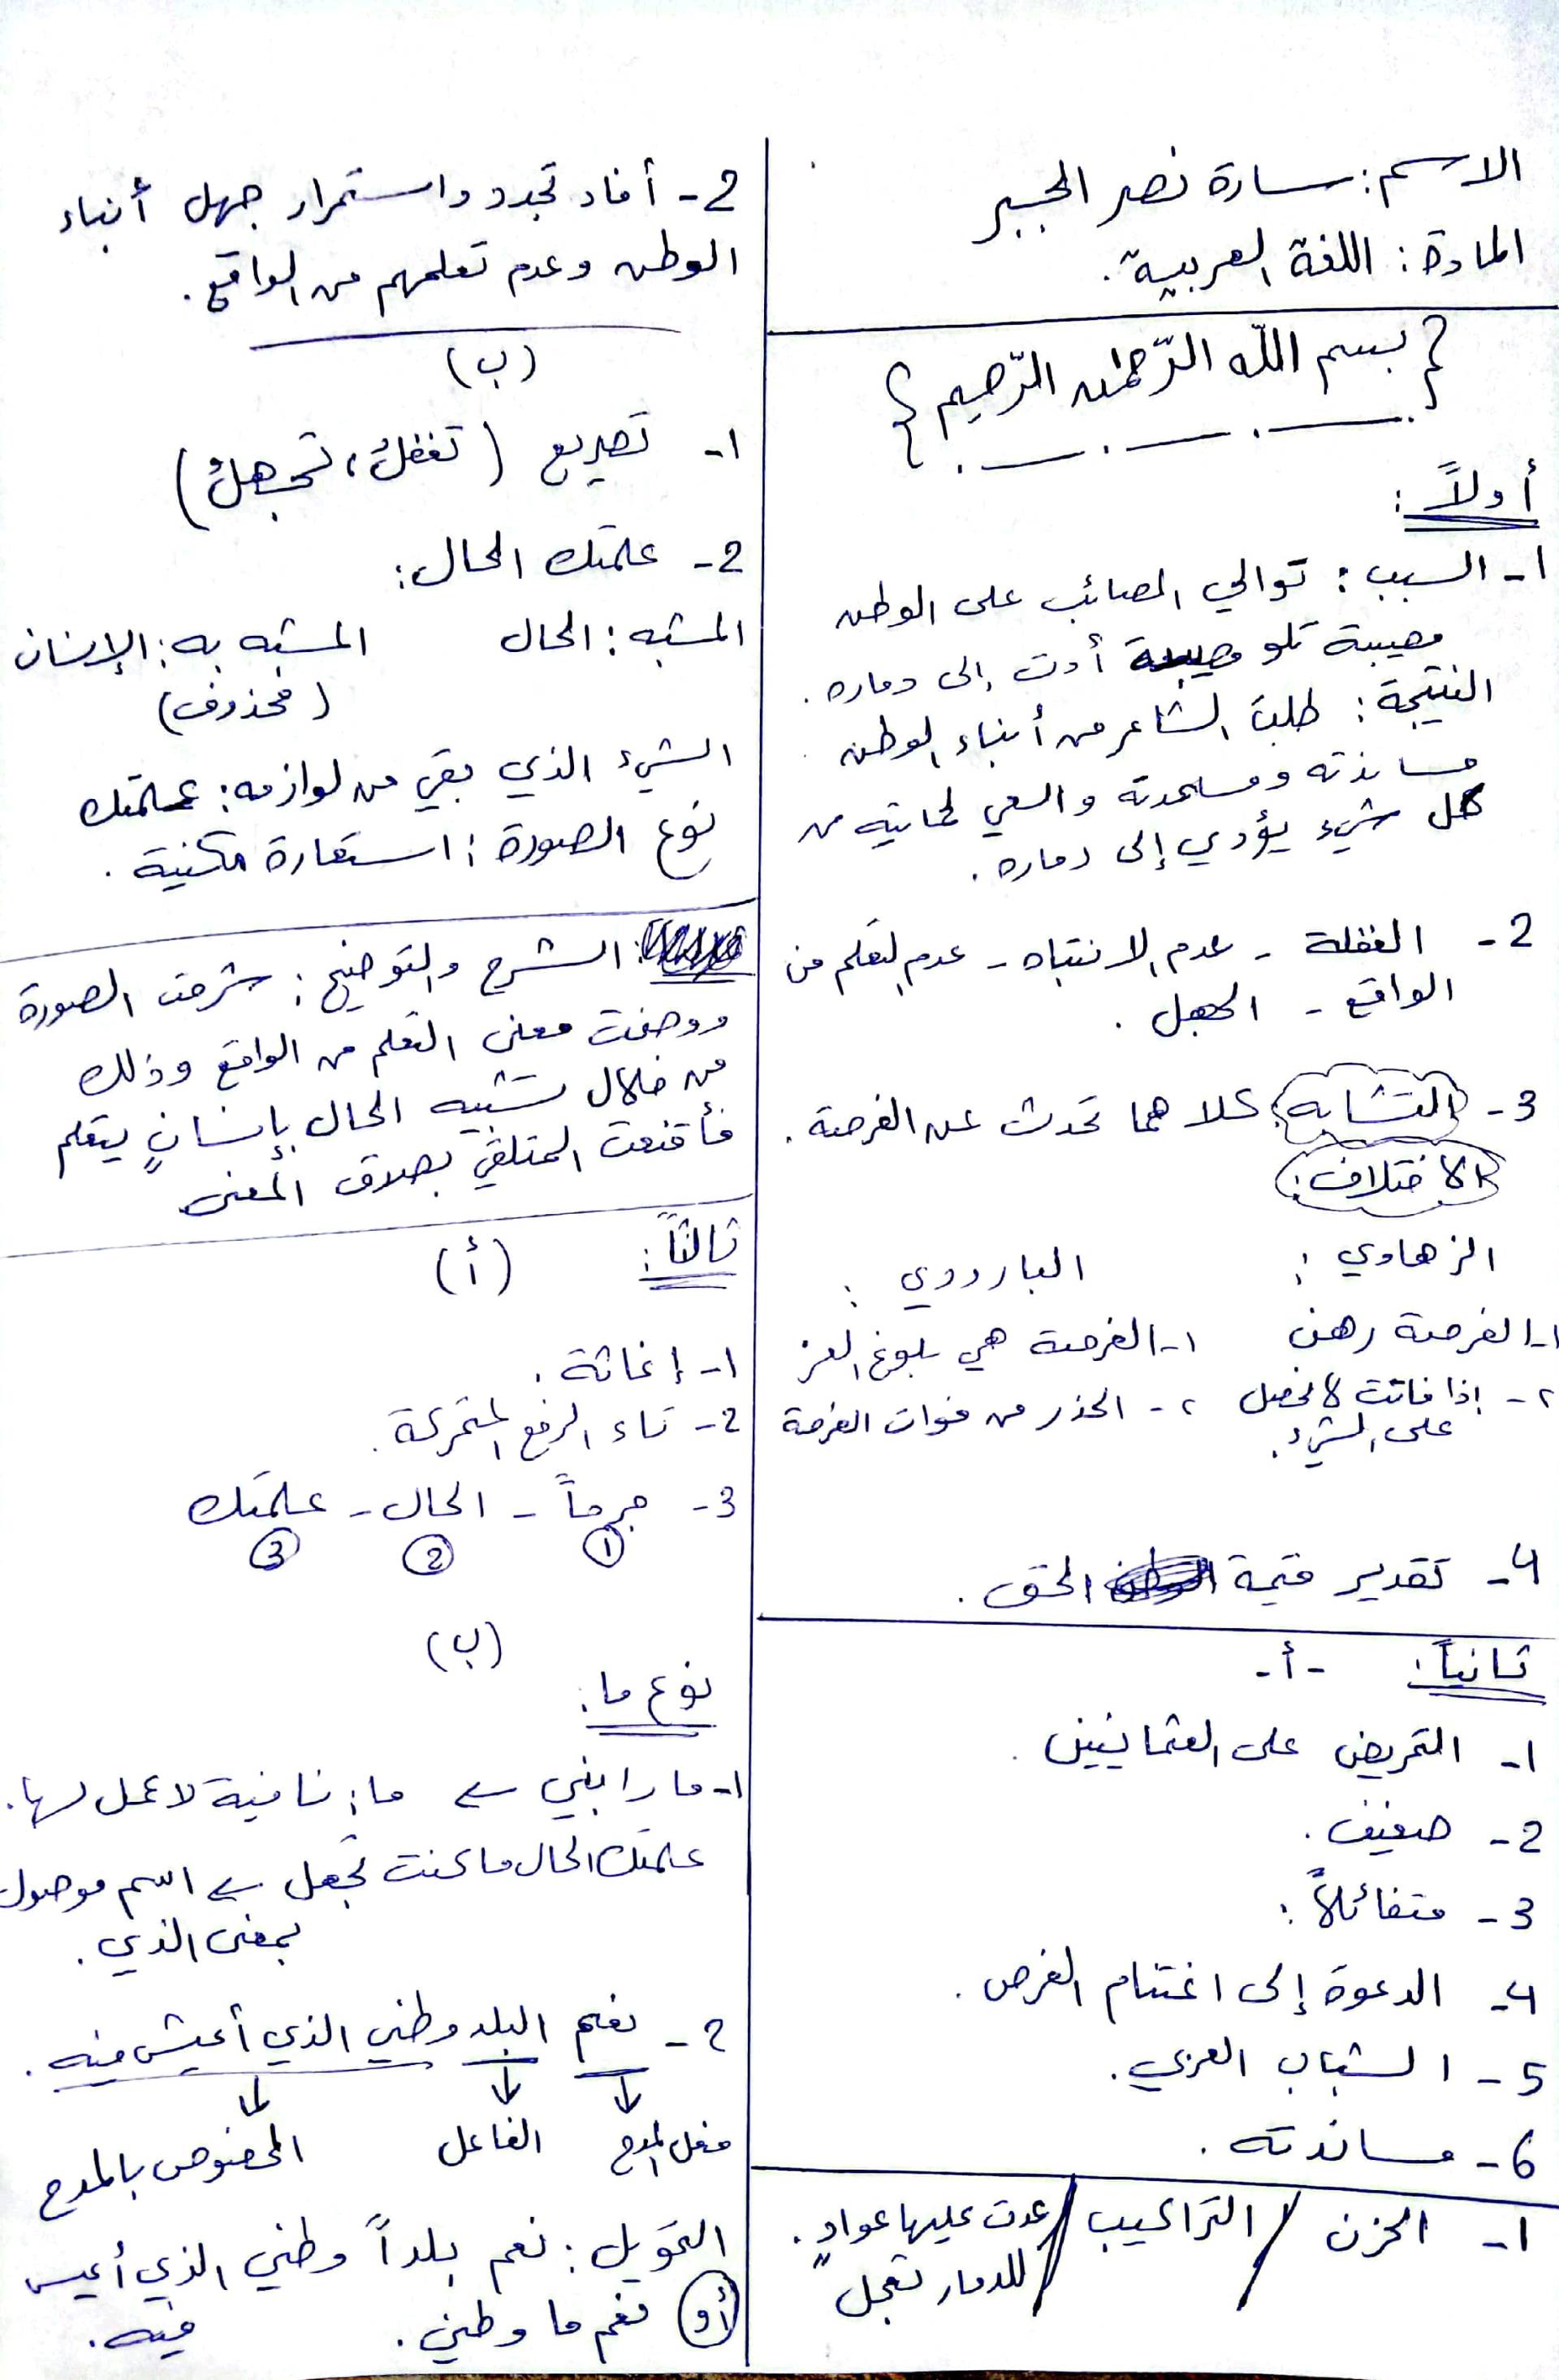 الاسم: سارة نصر الجبير
المادة: اللغة العربية.
{بسم الله الرّحمٰن الرّحيم}
أولاً:
1- السبب: توالي المصائب على الوطن
مصيبة تلو مصيبة أدت إلى دماره.
النتيجة: طلب الشاعر من أبناء الوطن
مساندته ومساعدته والسعي لحمايته من
كل شيء يؤدي إلى دماره.
2- الغفلة - عدم الانتباه - عدم التعلم من
الواقع - الجهل.
3- التشابه: كلاهما تحدث عن الفرصة.
الاختلاف:
الزهاوي: البارودي:
1- الفرصة رهن 1- الفرصة هي بلوغ العز
٢- إذا فاتت لا نحصل ٢- الحذر من فوات الفرصة
على الشيء.
4- تقدير قيمة الحق.
ثانياً: -أ-
1- التحريض على العثمانيين.
2- ضعيف.
3- متفائلاً:
4- الدعوة إلى اغتنام الفرص.
5- الشباب العربي.
6- مساندته.
1- الحزن / التراكيب / عدت عليها عوادٍ.
للدمار تعجل"
2- أفاد تجدد واستمرار جهل أبناء
الوطن وعدم تعلمهم من الواقع.
(ب)
1- تصريع (تغفلُ، تجهلُ)
2- علمتك الحال:
المشبه: الحال المشبه به: الإنسان
(محذوف)
الشيء الذي بقي من لوازمه: علمتك
نوع الصورة: استعارة مكنية.
الشرح والتوضيح: شرحت الصورة
ووضحت معنى التعلم من الواقع وذلك
من خلال تشبيه الحال بإنسانٍ يتعلم
فأقنعت المتلقي بصدق المعنى
ثالثاً: (أ)
1- إغاثة.
2- تاء الرفع المتحركة.
3- جرحاً - الحال - علمتك
1 2 3
(ب)
نوع ما:
1- ما رابني ← ما: نافية لا عمل لها.
علمتك الحال ما كنت تجهل ← اسم موصول
بمعنى الذي.
2- نعم البلد وطني الذي أعيش فيه.
فعل المدح الفاعل المخصوص بالمدح
التحويل: نعم بلداً وطني الذي أعيش
فيه.
أو نعم ما وطني.